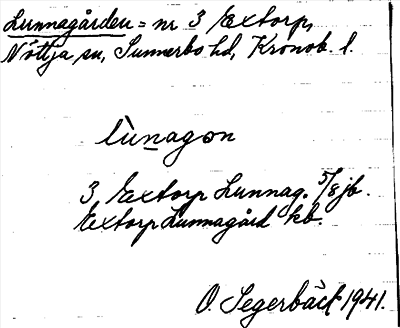 Lunnagården = nr 3 Extorp,
Nöttja sn, Sunnerbo hd, Kronob. l.
lùnagon
3 Extorp Lunnag. 5/8 jb.
Extorp Lunnagård kb.
O. Segerbäck 1941.